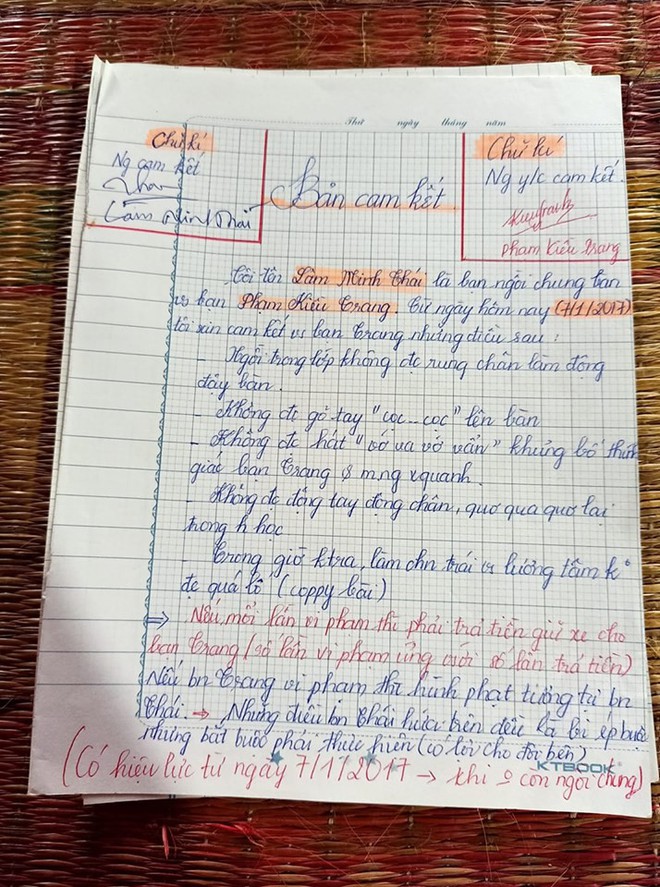 Thứ ngày tháng năm
Chữ kí
Ng cam kết
Lâm Minh Thái
Bản cam kết
Chữ kí
Ng y/c cam kết.
Phạm Kiều Trang
Tôi tên Lâm Minh Thái là bạn ngồi chung bàn
vs bạn Phạm Kiều Trang. Từ ngày hôm nay (7/1/2017)
tôi xin cam kết vs bạn Trang những điều sau:
- Ngồi trong lớp không đc rung chân làm động
đậy bàn.
- Không đc gõ tay "cọc...cọc" lên bàn
- Không đc hát "vớ va vớ vẩn" khủng bố thính
giác bạn Trang & m.ng xquanh.
- Không đc động tay động chân, quơ qua quơ lại
trong h học
Trong giờ ktra, làm chn trái vs lương tâm k°
đc quá lố (coppy bài)
=> Nếu mỗi lần vi phạm thì phải trả tiền giữ xe cho
bạn Trang (số lần vi phạm ứng với số lần trả tiền)
Nếu bn Trang vi phạm thì hình phạt tương tự bn
Thái. → Những điều bn Thái hứa trên đều là lời ép buộc
nhưng bắt buộc phải thực hiện (có lợi cho đôi bên)
KTBOOK
(Có hiệu lực từ ngày 7/1/2017 → khi còn ngồi chung)